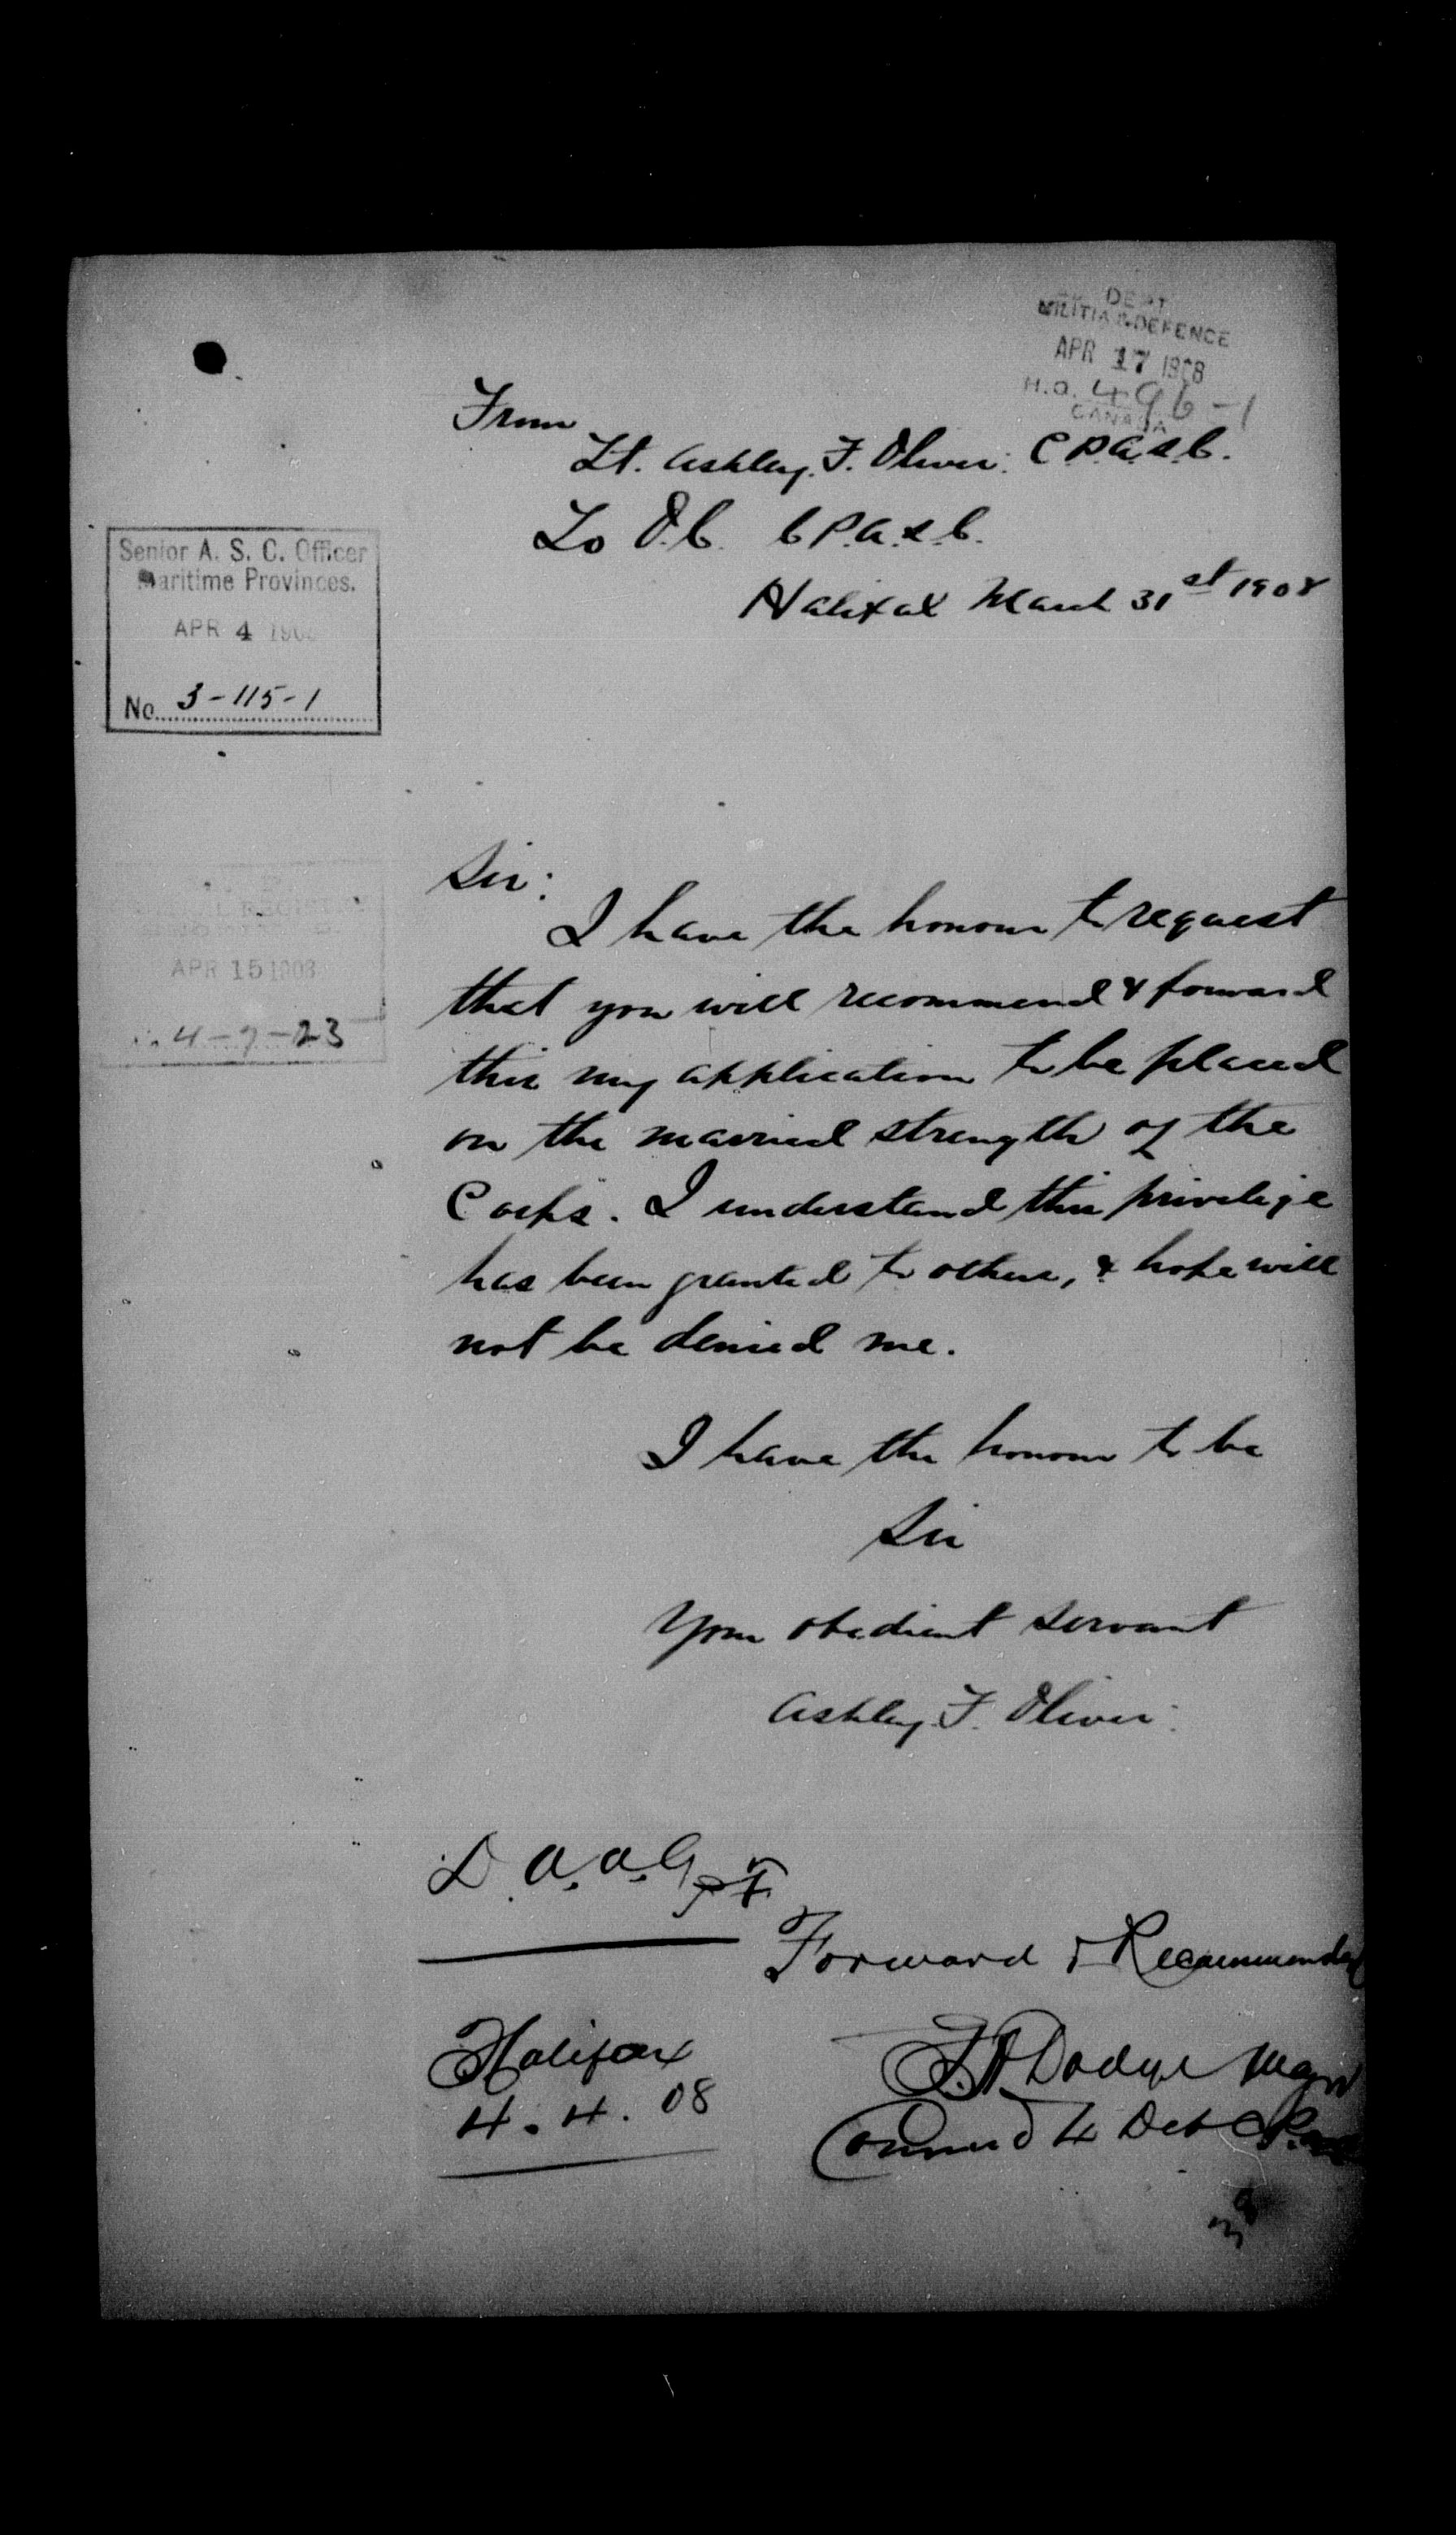 DEPT
MILITIA & DEFENCE
APR 17 1908
H.Q. 496-1
CANADA
From
Lt. Ashley. F. Oliver. C.P.A.S.C.
To O.C. C.P.A.S.C.
Halifax March 31st 1908
Senior A. S. C. Officer
Maritime Provinces.
APR 4 190
No. 3-115-1
Sir:
I have the honour to request
that you will recommend & forward
this my application to be placed
on the married strength of the
Corps. I understand this privelige
has been granted to others, & hope will
not be denied me.
REGISTRY
APR 15 1908
4-7-23
I have the honour to be
Sir
Your obedient servant
Ashley. F. Oliver.
D.A.A.G.
Forward & Recommended
Halifax
4.4.08
Dodge Major
Commd 4 Det C.P.